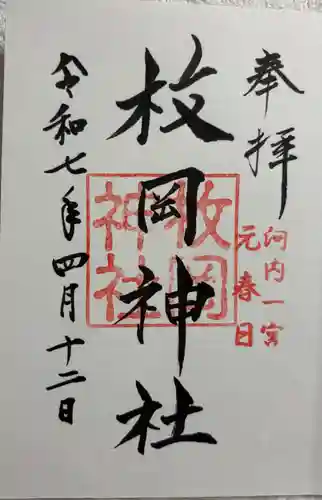 奉拝
河内一宮
元春日
枚岡神社
枚岡
神社
令和七年四月十二日